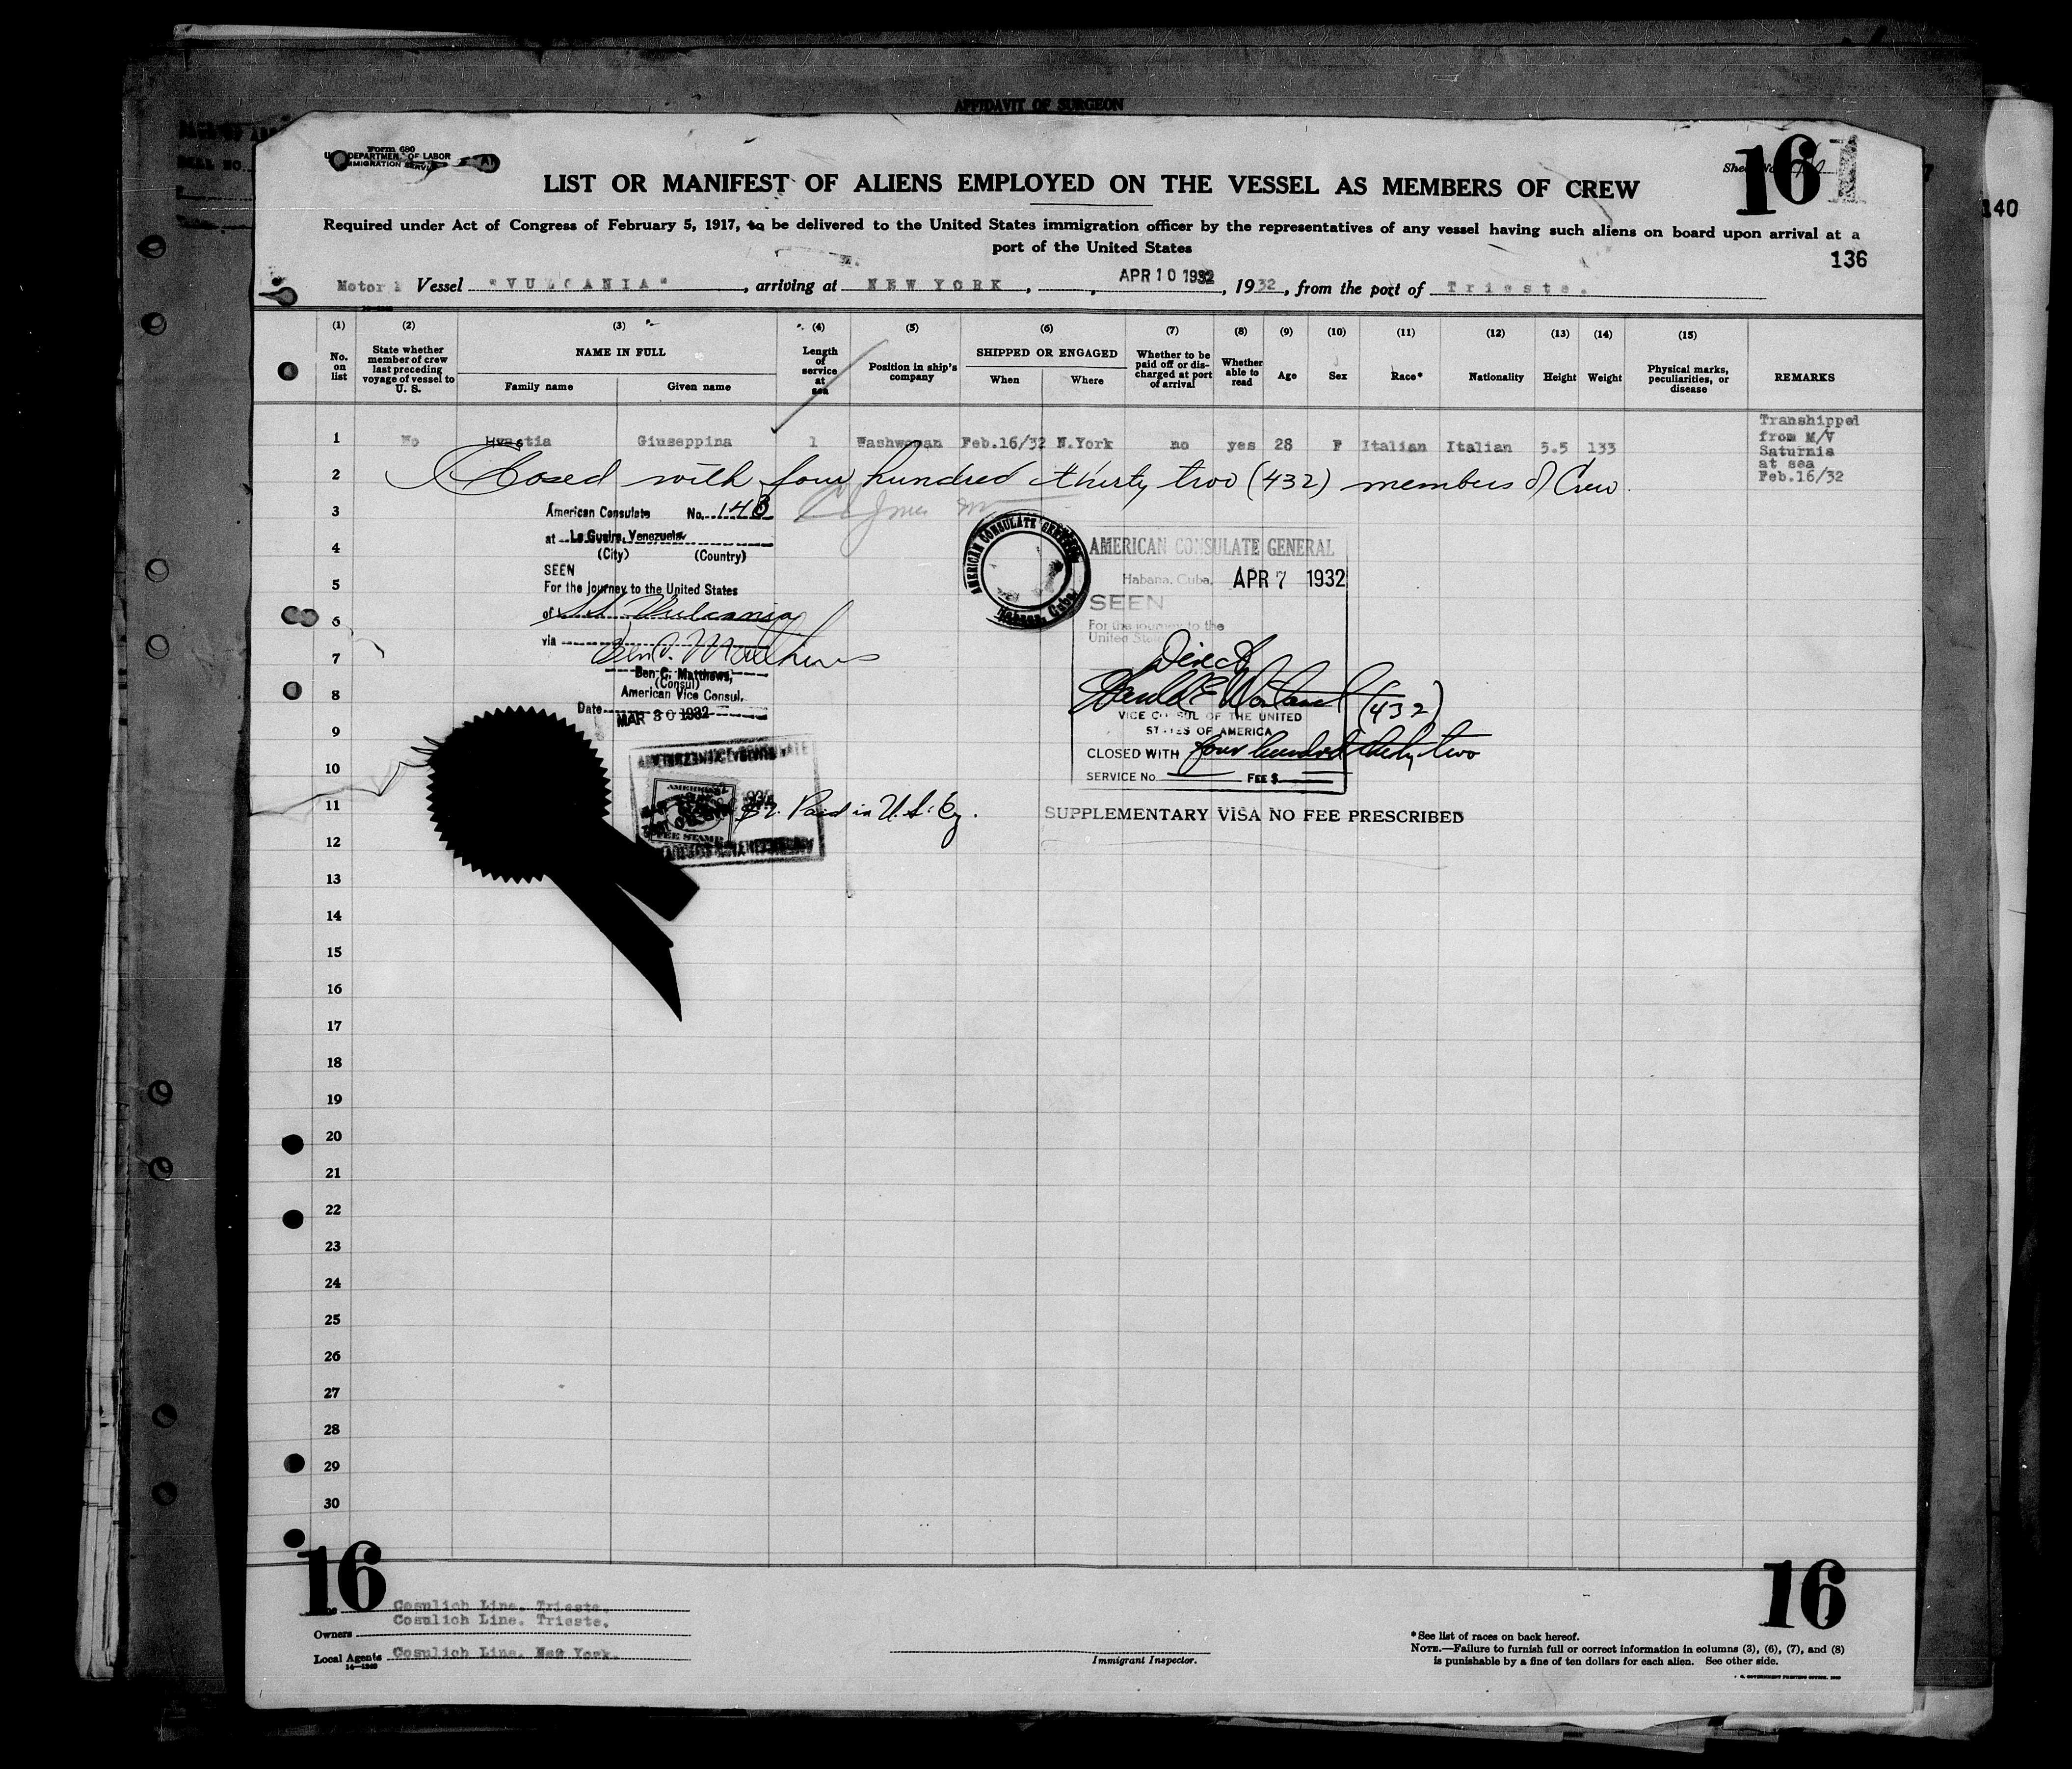 AFFIDAVIT OF SURGEON
Form 680
U. S. DEPARTMENT OF LABOR
IMMIGRATION SERVICE
Sheet No.
16 1
140
LIST OR MANIFEST OF ALIENS EMPLOYED ON THE VESSEL AS MEMBERS OF CREW
Required under Act of Congress of February 5, 1917, to be delivered to the United States immigration officer by the representatives of any vessel having such aliens on board upon arrival at a
port of the United States
136
Motor Vessel "VULCANIA", arriving at NEW YORK, APR 10 1932, 1932, from the port of Trieste.
(1) (2) (3) (4) (5) (6) (7) (8) (9) (10) (11) (12) (13) (14) (15)
No. on list
State whether member of crew last preceding voyage of vessel to U. S.
NAME IN FULL
Family name Given name
Length of service at sea
Position in ship's company
SHIPPED OR ENGAGED
When Where
Whether to be paid off or discharged at port of arrival
Whether able to read
Age
Sex
Race*
Nationality
Height
Weight
Physical marks, peculiarities, or disease
REMARKS
1 No Giuseppina 1 Washwoman Feb.16/32 N.York no yes 28 F Italian Italian 5.5 133
Transhipped
from M/V
Saturnia
at sea
Feb.16/32
2 Closed with four hundred thirty two (432) members of Crew.
3
4
5
6
7
8
9
10
11
12
13
14
15
16
17
18
19
20
21
22
23
24
25
26
27
28
29
30
American Consulate No. 143
at La Guaira, Venezuela
(City) (Country)
SEEN
For the journey to the United States
of SS Vulcania
via
Ben C. Matthews
Ben C. Matthews,
(Consul)
American Vice Consul.
Date MAR 30 1932
AMERICAN
FEE STAMP
$2. Paid in U.S. Cy.
AMERICAN CONSULATE GENERAL
Habana, Cuba.
AMERICAN CONSULATE GENERAL
Habana, Cuba, APR 7 1932
SEEN
For the journey to the
United States
Direct
(432)
VICE CONSUL OF THE UNITED
STATES OF AMERICA
CLOSED WITH four hundred thirty two
SERVICE No. FEE $
SUPPLEMENTARY VISA NO FEE PRESCRIBED
16
16
Cosulich Line. Trieste.
Cosulich Line. Trieste.
Owners
Local Agents Cosulich Line. New York.
14—1240
Immigrant Inspector.
*See list of races on back hereof.
NOTE.—Failure to furnish full or correct information in columns (3), (6), (7), and (8)
is punishable by a fine of ten dollars for each alien. See other side.
U. S. GOVERNMENT PRINTING OFFICE